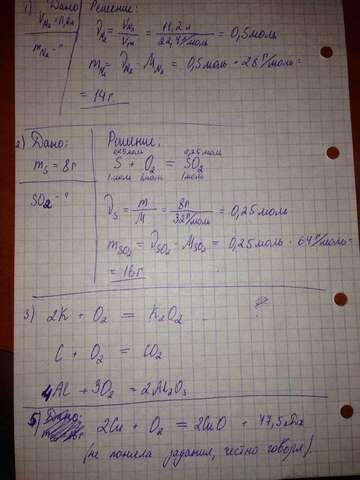 1) Дано: Решение:
V N₂ = 11,2л ν N₂ = V N₂ / Vm = 11,2 л / 22,4 л/моль = 0,5 моль
m N₂ - ? m N₂ = ν N₂ · M N₂ = 0,5 моль · 28 г/моль =
= 14 г
2) Дано: Решение:
0,25 моль 0,25 моль
m s = 8г S + O₂ = SO₂
1 моль 1 моль
SO₂ - ? ν s = m / M = 8г / 32 г/моль = 0,25 моль
m SO₂ = ν SO₂ · M SO₂ = 0,25 моль · 64 г/моль =
= 16 г
3) 2K + O₂ = K₂O₂
C + O₂ = CO₂
4Al + 3O₂ = 2Al₂O₃
5) Дано: 2Cu + O₂ = 2CuO + 47,5 кДж
(не поняла задания, честно говоря).